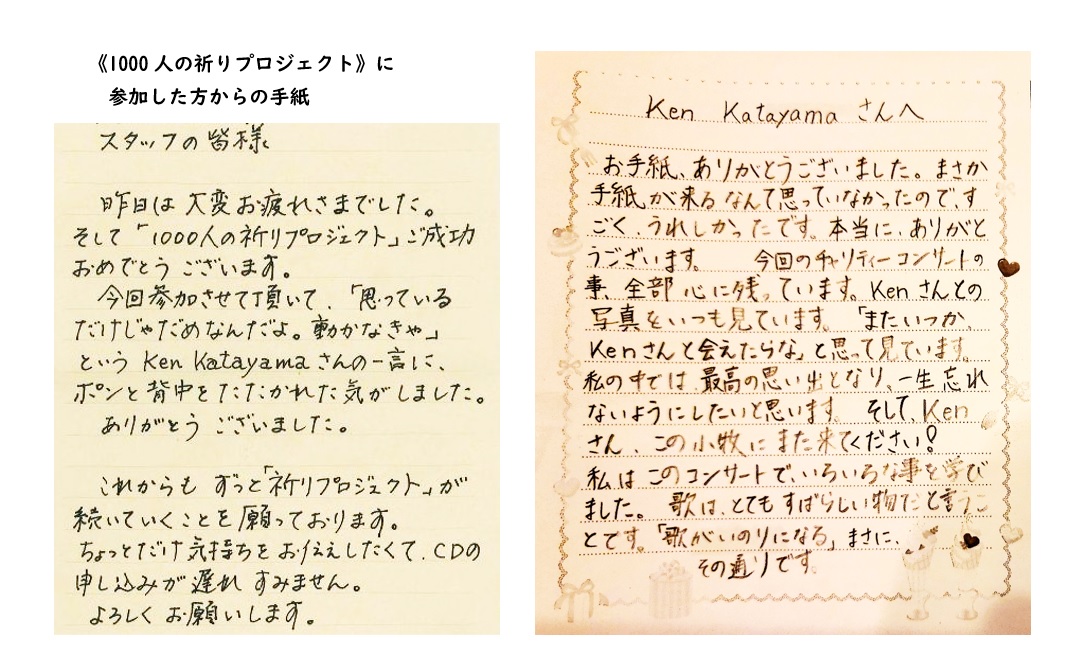 《1000人の祈りプロジェクト》に
参加した方からの手紙
スタッフの皆様
昨日は大変お疲れさまでした。
そして「1000人の祈りプロジェクト」ご成功
おめでとうございます。
今回参加させて頂いて、「思っている
だけじゃだめなんだよ。動かなきゃ」
という Ken Katayama さんの一言に、
ポンと背中をたたかれた気がしました。
ありがとうございました。
これからもずっと「祈りプロジェクト」が
続いていくことを願っております。
ちょっとだけ気持ちをお伝えしたくて、CDの
申し込みが遅れすみません。
よろしくお願いします。
Ken Katayama さんへ
お手紙、ありがとうございました。まさか
手紙が来るなんて思っていなかったので、す
ごく、うれしかったです。本当に、ありがと
うございます。 今回のチャリティーコンサートの
事、全部心に残っています。Kenさんとの
写真をいつも見ています。「またいつか、
Kenさんと会えたらな」と思って見ています。
私の中では、最高の思い出となり、一生忘れ
ないようにしたいと思います。 そして、Ken
さん、この小牧にまた来てください!
私はこのコンサートで、いろいろな事を学び
ました。 歌は、とてもすばらしい物だと言うこ
とです。「歌がいのりになる」まさに、
その通りです。